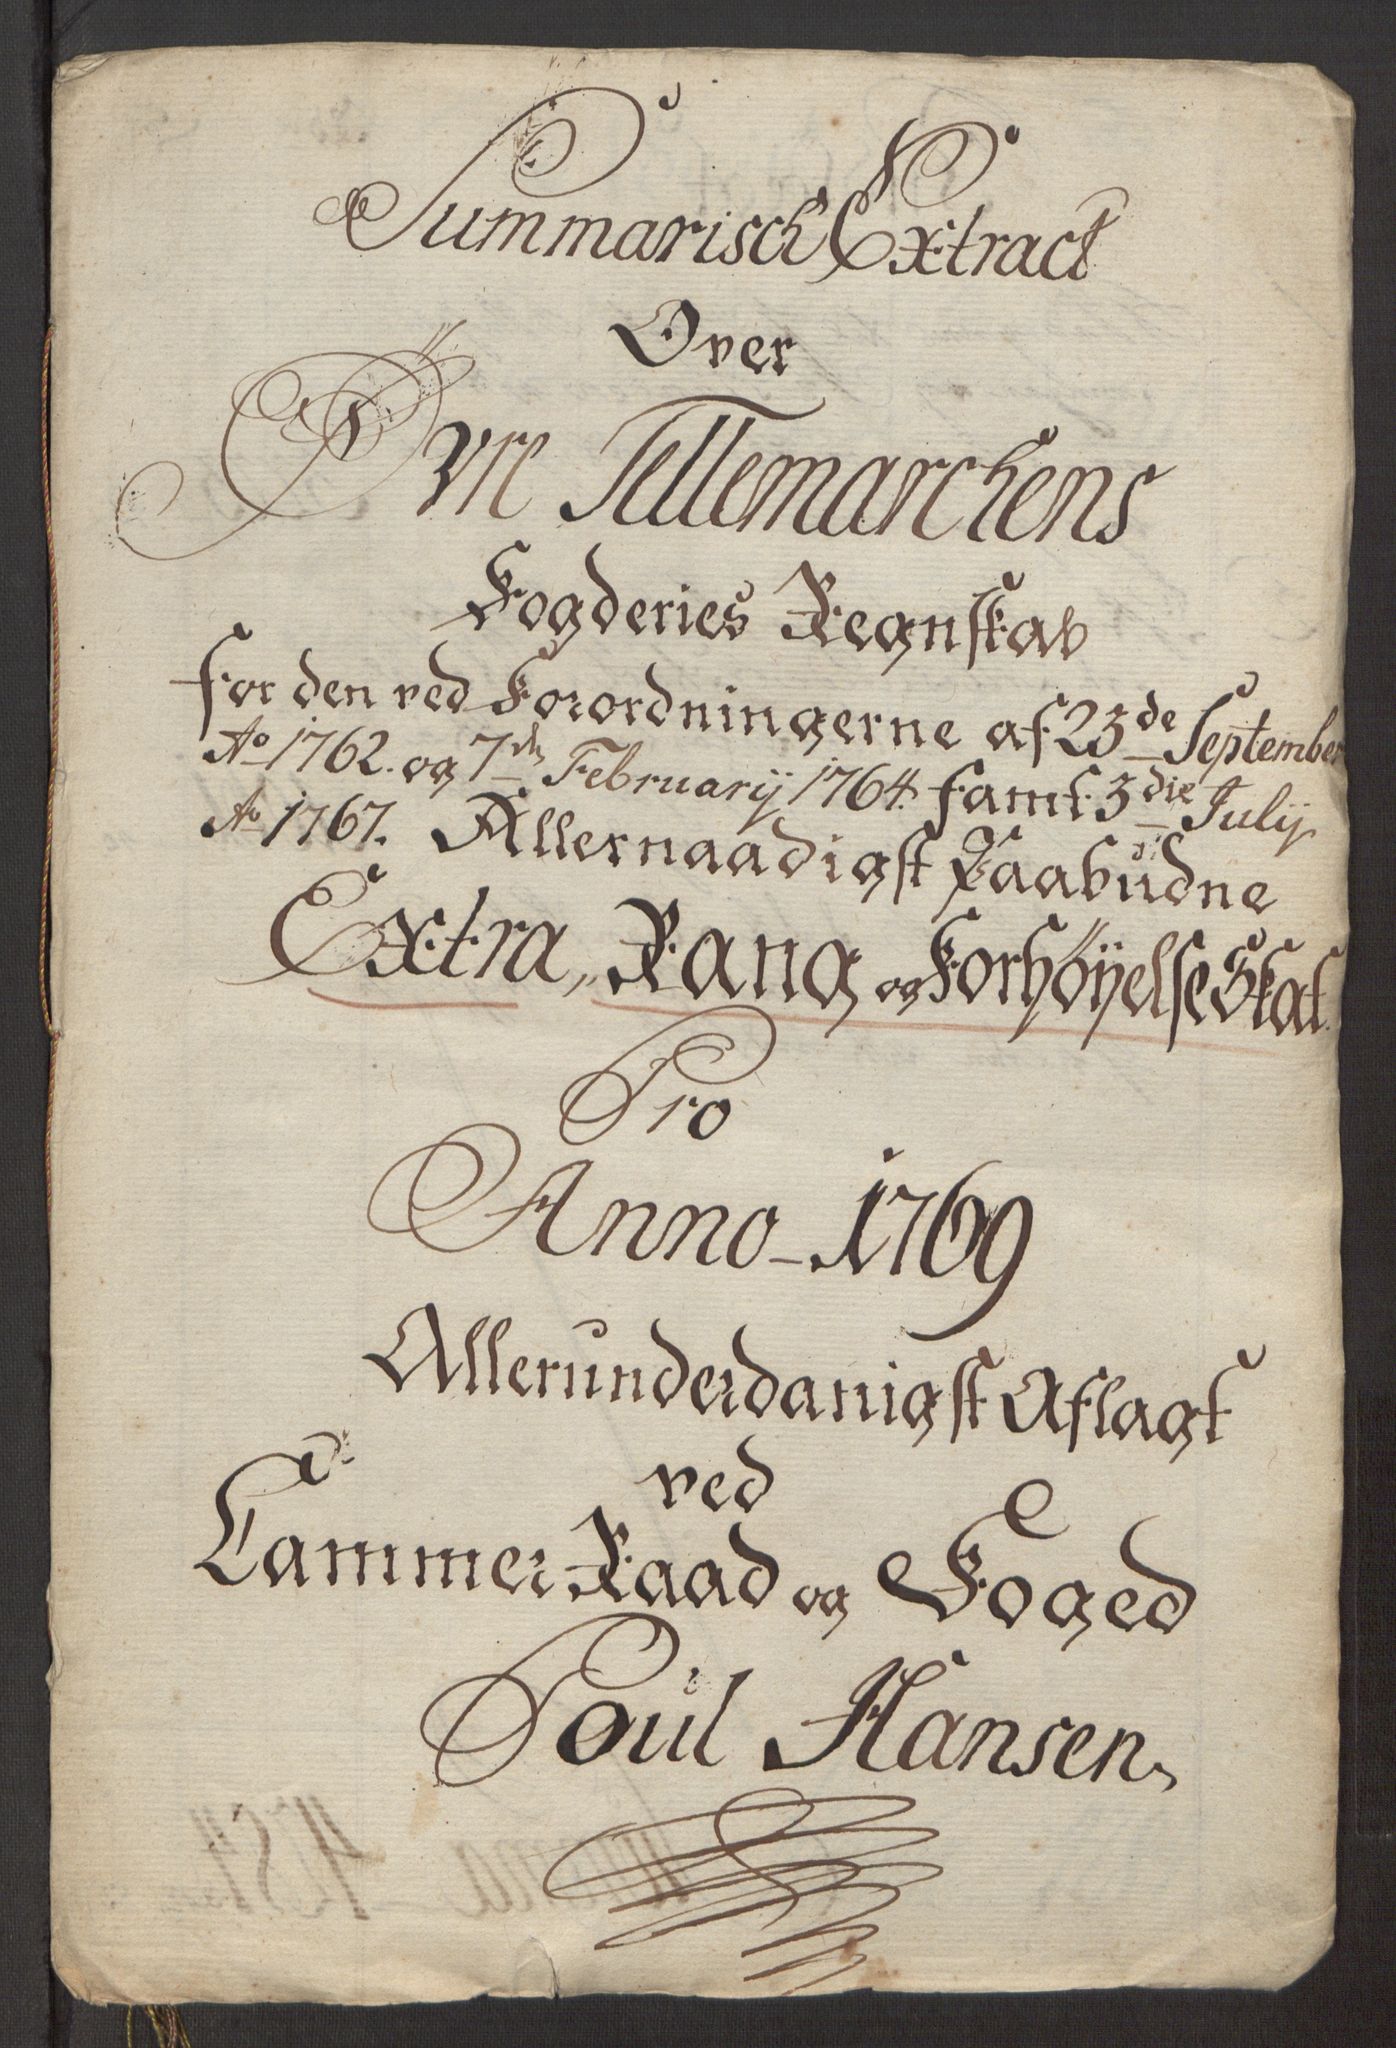 Summarisch Extract
Over
Øvre Tellemarchens
Fogderies Regnskab
for den ved Forordningerne af 23de September
Ao 1762. og 7de Februarij 1764. samt 3die Julij
Ao 1767. Allernaadigst Paabudne
Extra, Rang og Forhøyelse Skat.
Pro
Anno 1769
Allerunderdanigst Aflagt
ved
Cammer Raad og Foged
Poul Hansen